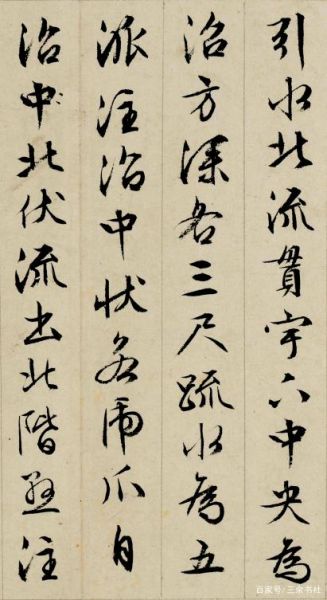 引水北流貫宇下中央為
沼方深各三尺疏水為五
派注沼中狀若虎爪自
沼中北伏流出北階懸注
百家号/三余书社